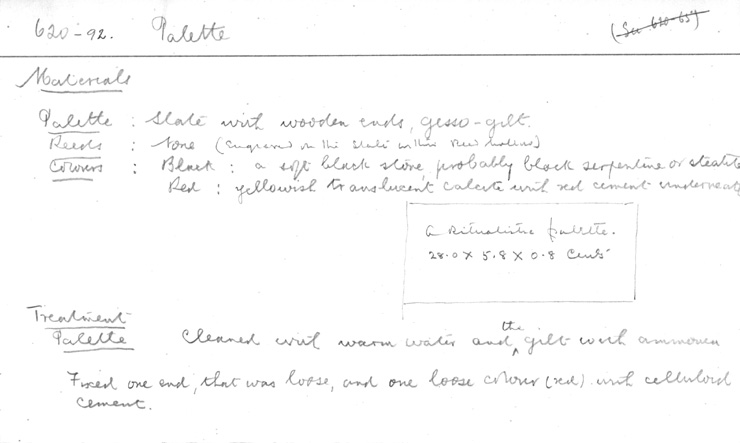 620-92. Palette (See 620-65)
Materials
Palette : Slate with wooden ends, gesso-gilt.
Reeds : None (Engraved on the slate within Reed hollow)
Colours : Black : a soft black stone, probably black serpentine or steatite
Red : yellowish translucent calcite with red cement underneath
A Ritualistic palette.
28.0 x 5.8 x 0.8 Cents
Treatment
Palette Cleaned with warm water and the gilt with ammonia
Fixed one end, that was loose, and one loose colour (red) with celluloid
cement.